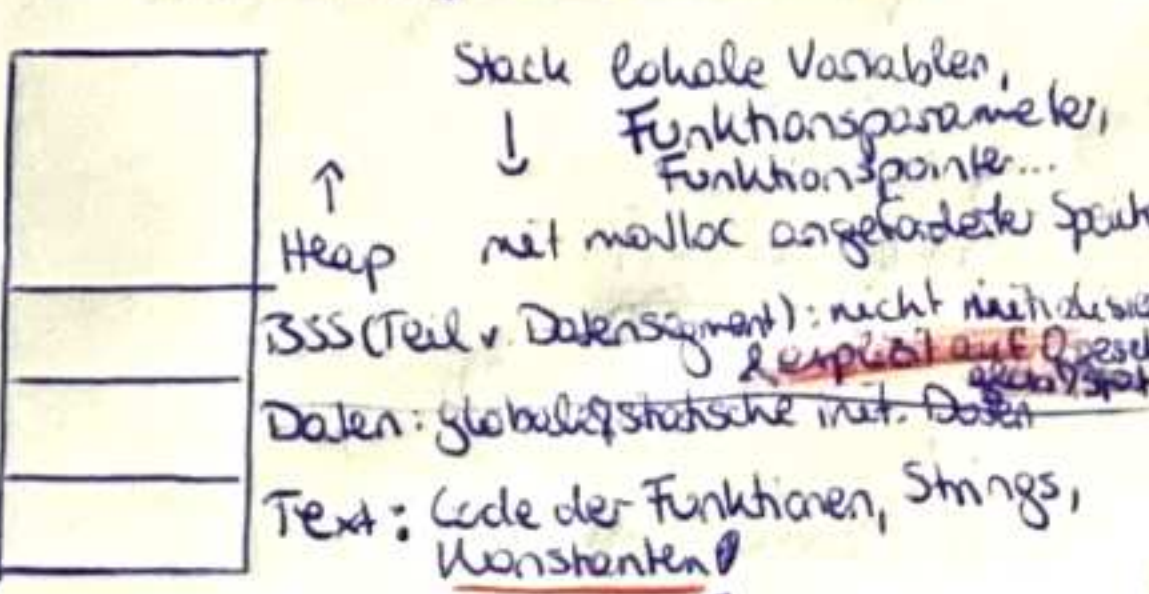 Stack lokale Variablen,
↓ Funktionsparameter,
↑ Funktionspointer...
Heap mit malloc angeforderter
BSS (Teil v. Datensegment): nicht
& explizit auf 0
Daten: globale & statische init. Daten
Text: Code der Funktionen, Strings,
Konstanten!